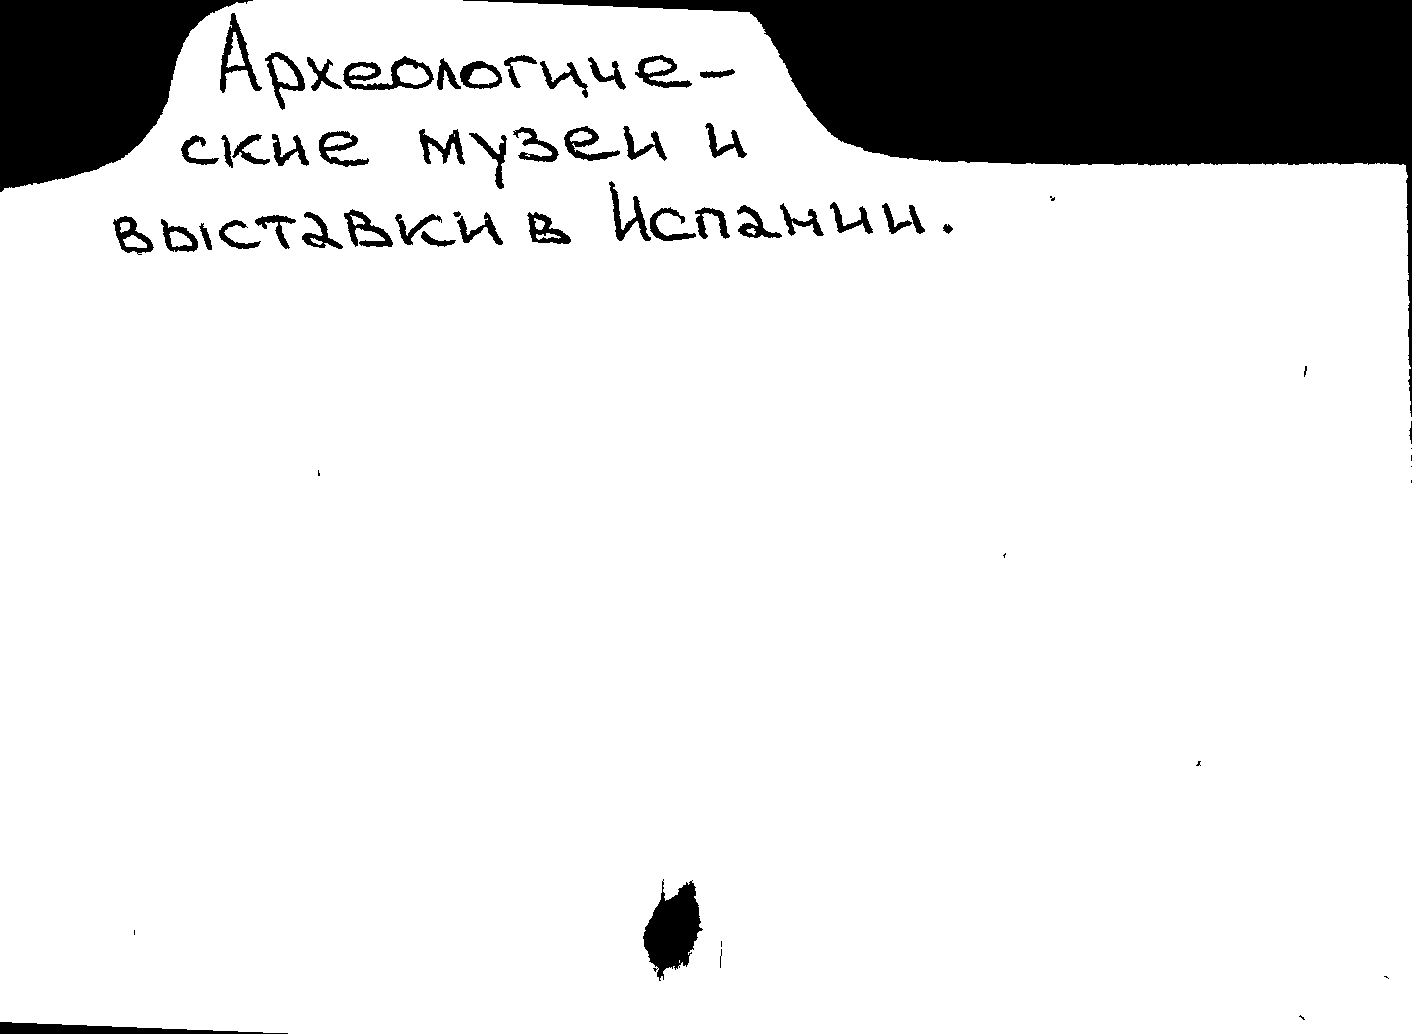 Археологиче-
ские музеи и
выставки в Испании.